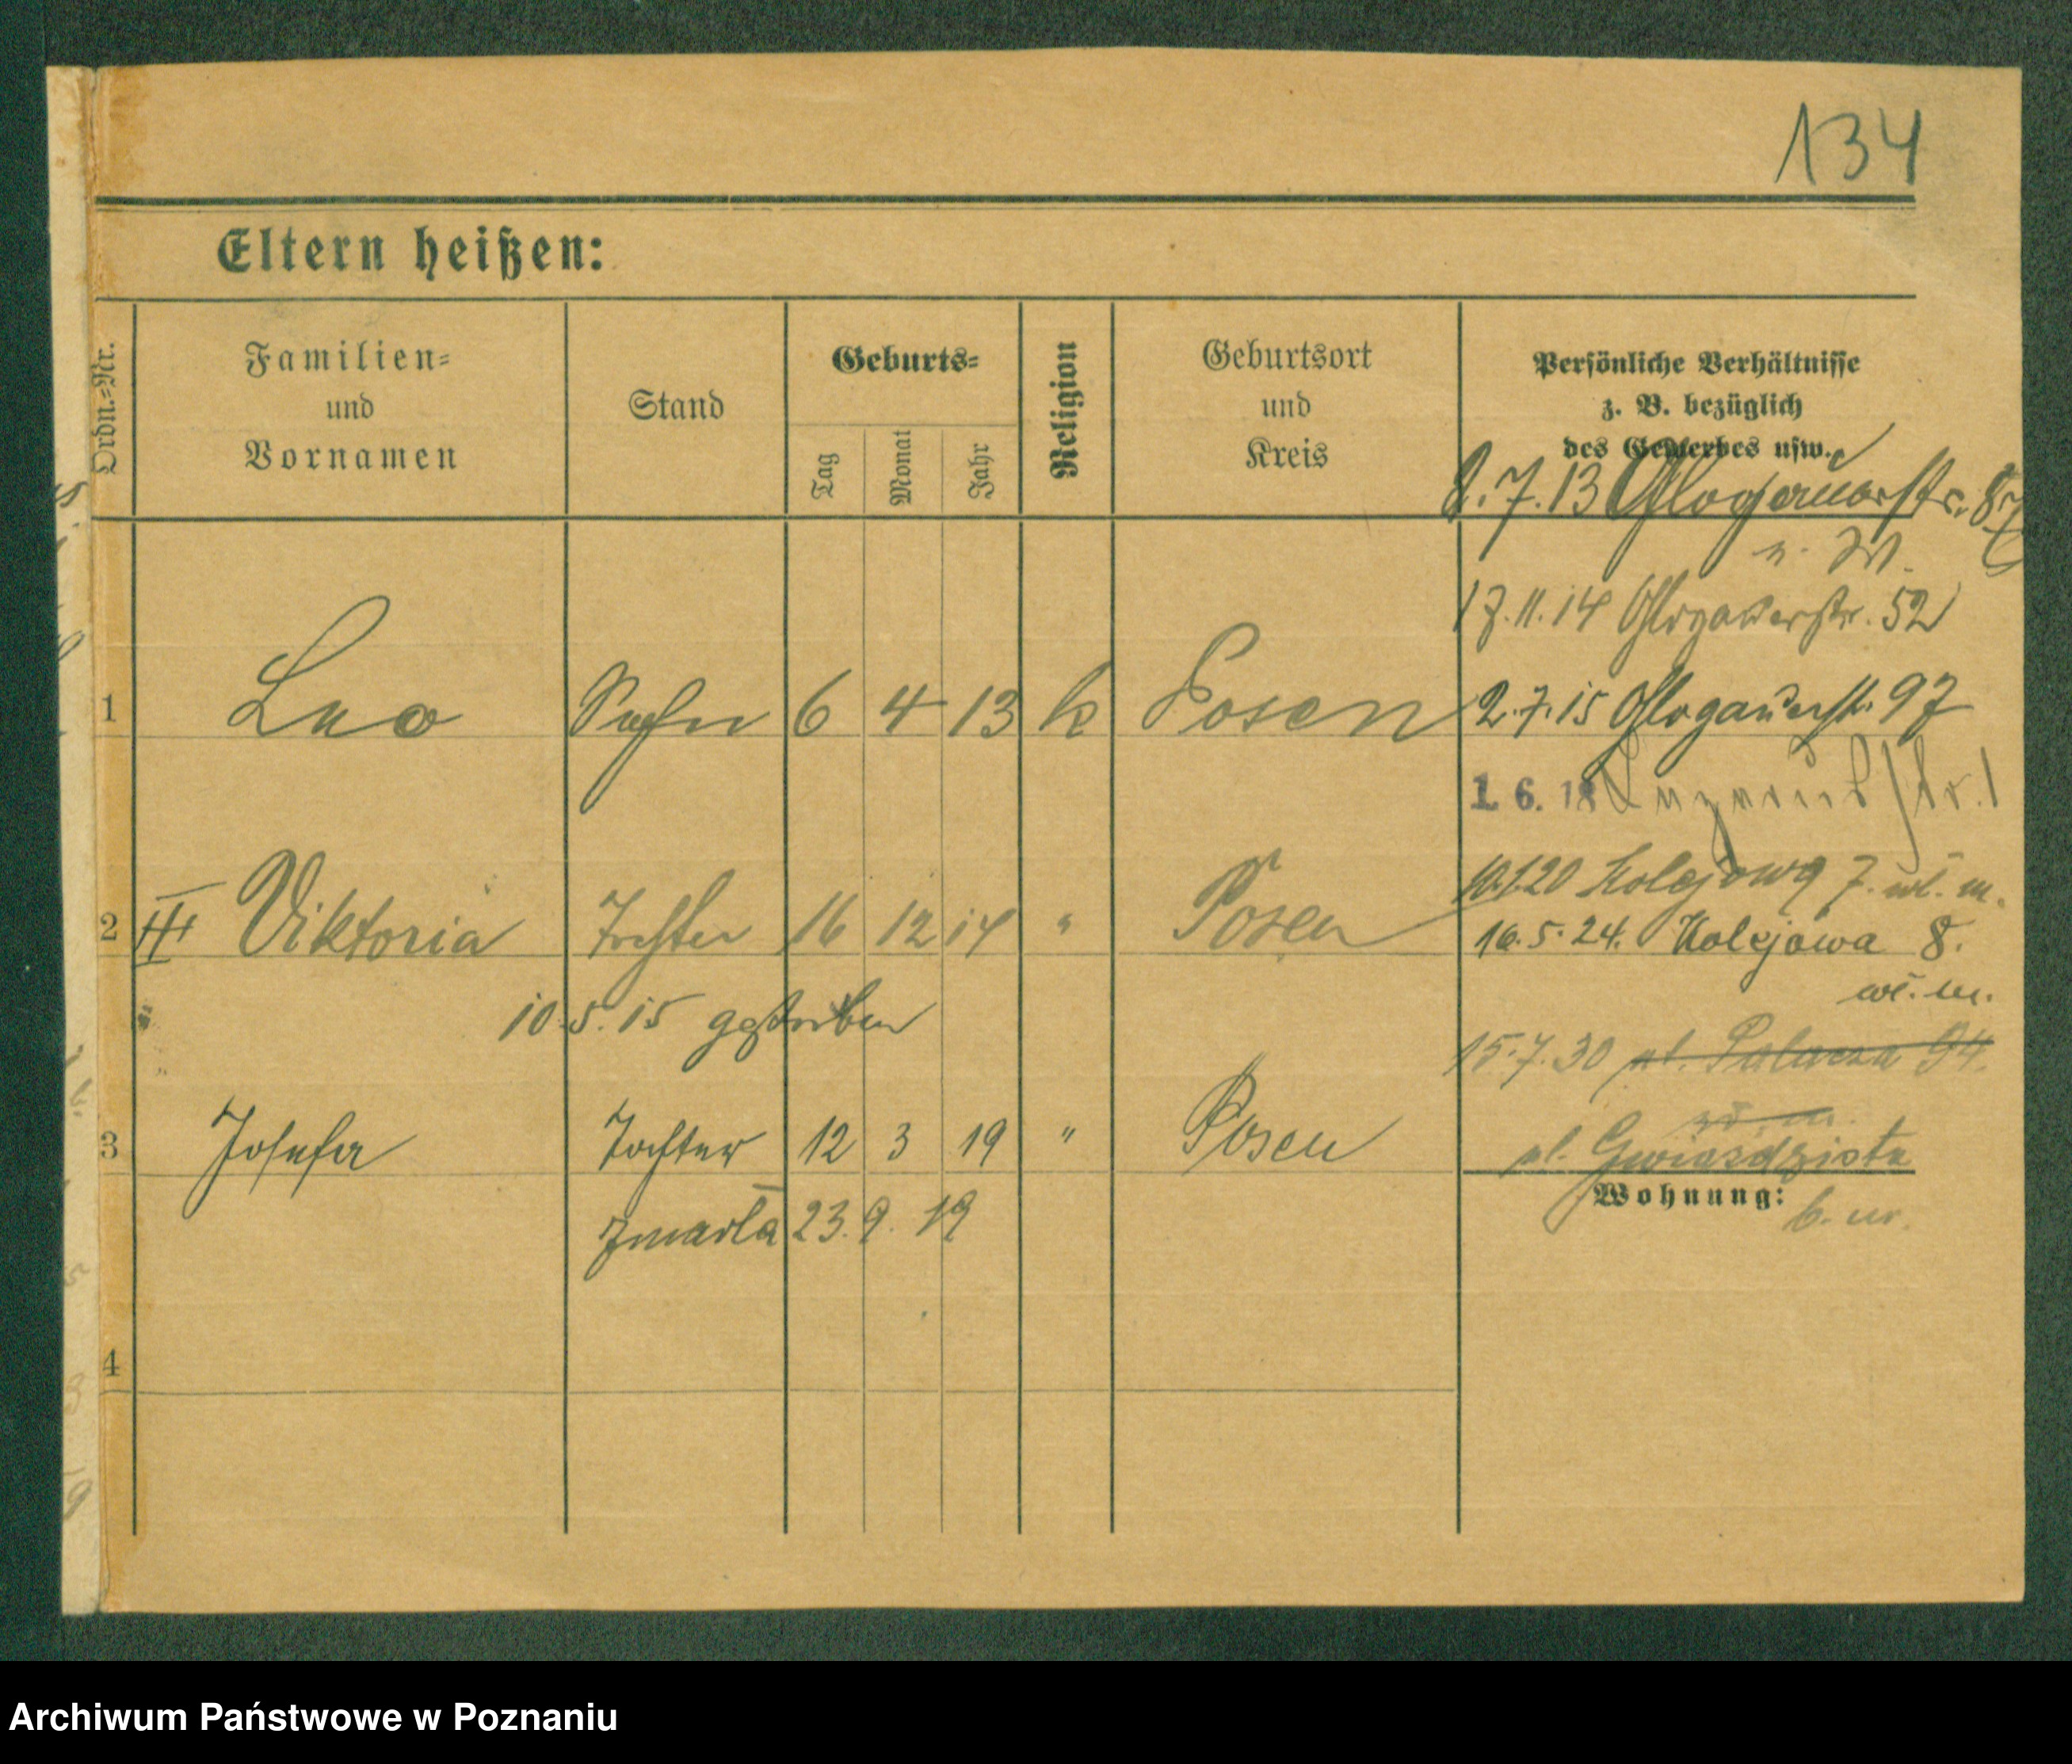 134
Eltern heißen:
Ordn.=Nr.
Familien=
und
Vornamen
Stand
Geburts=
Tag
Monat
Jahr
Religion
Geburtsort
und
Kreis
Persönliche Verhältnisse
z. B. bezüglich
des Gewerbes usw.
2.7.13 Glogauerstr.
n. W.
17.11.14 Glogauerstr. 52
1 Leo Sohn 6 4 13 k Posen
2.7.15 Glogauerstr. 97
1. 6. 18
10.1.20 Kolejowa 7. wł. m.
2 III Viktoria Tochter 16 12 14 " Posen
16.5.24. Kolejowa 8.
wł. m.
10.5.15 gestorben
15.7.30 ul. Palacza 94.
3 Josefa Tochter 12 3 19 " Posen
ul. Gwiaździsta
Wohnung:
b. nr.
Zmarła 23. 9. 19
4
Archiwum Państwowe w Poznaniu